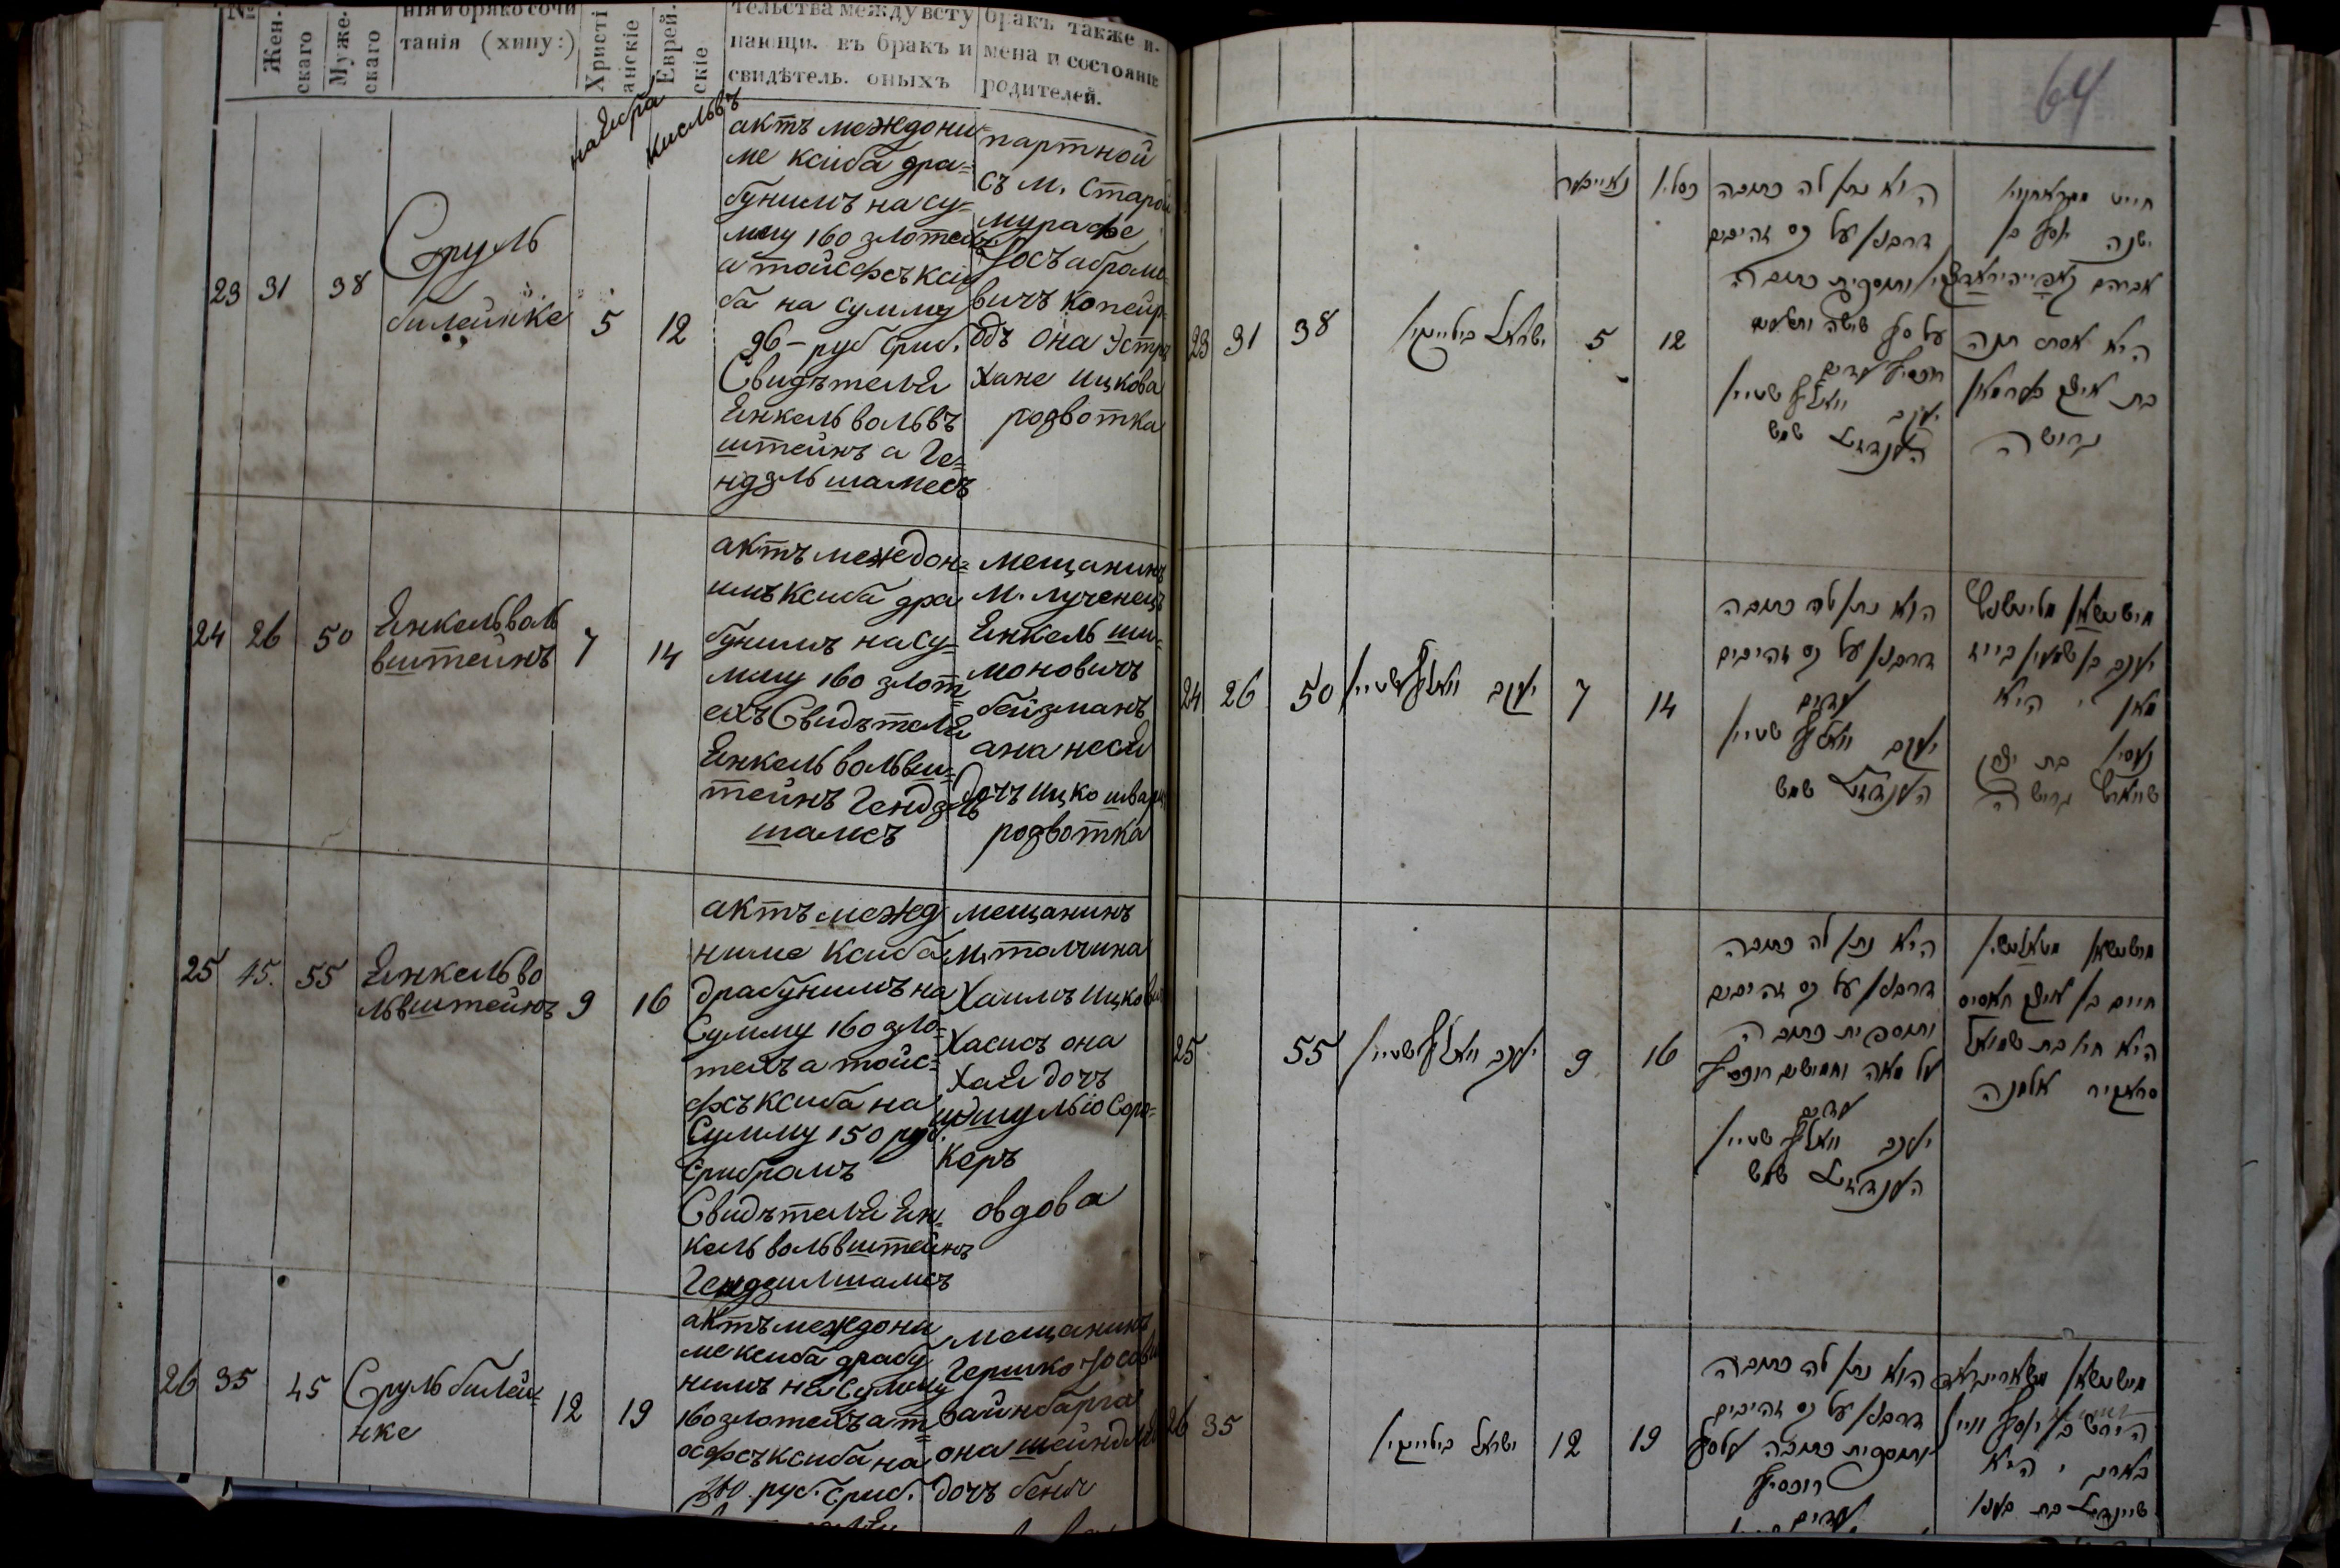 №
Жен-
скаго
Муже-
скаго
нія и обряко сочи
танія (хипу:)
Христі
анскіе
Еврей-
скіе
тельства между всту
пающи. въ бракъ и
свидѣтель. оныхъ
бракъ также и-
мена и состояніе
родителей.
ноябра
кисльвъ
23 31 38
Сруль
билейнке
5 12
актъ междони
ме ксиба дра=
бунимъ на су=
мму 160 злотехъ
а тойсфсъ кси
ба на сумму
96 – руб сриб.
Свидѣтеля
Енкель вольвъ
штейнъ а Ге=
ндзль шамесъ
партной
съ м. Старой
мурафе
Іосъ абромо
вичъ копейр
одъ она Эстръ
Хане ицкова
розвотка
24 26 50
Енкель воль
вштейнъ
7 14
актъ междон=
имъ ксиба дра
бунимъ на су=
мму 160 злот
ехъ Свидѣтеля
Енкель вольвш=
тейнъ Гендзль
шамсъ
мещанинъ
м. лученецъ
Енкель ши=
моновичъ
бейзманъ
ана неся
дочъ ицко шварц
розвотка
25 45. 55
Енкель во
львштейнъ
9 16
актъ межд
ниме ксиба
драбунимъ на
Сумму 160 зло=
техъ а тойс=
фсъ ксиба на
Сумму 150 руб.
срибромъ
Свидѣтеля Ен=
кель вольвштейнъ
Гендзил шамсъ
мещанинъ
м. толчина
Хаимъ ицкови
Хасисъ она
Хая дочъ
шмулью Соро=
керъ
овдова
26 35 45
Сруль билей=
нке
12 19
актъ междони
ме ксиба драбу
нимъ на Сумму
160 злотехъ а т=
осфсъ ксиба на
руб. сриб.
мещанинъ
Гершко Іосови
вайнбарга
она шейндля
дочъ бенч
64
נאייבער
כסליו
23 31 38
ישראל ביליינקי
5 12
הוא נתן לה כתובה
דרבנן על קס זהובים
ותוספות כתובה
על סך ששה ותשעים
עדים
יעקב וואלף שטיין
הענדזיל שמש
חייט
ישנה יוסף בן
אברהם
היא אסתר חנה
בת איציק
גרושה
24 26 50
יעקב וואלף שטיין
7 14
הוא נתן לה כתובה
דרבנן על קס זהובים
עדים
יעקב וואלף שטיין
הענדזיל שמש
יעקב בן שמעון בייז
מאן היא
נעסיא בת יצחק
שווארץ גרושה
25 55
יעקב וואלף שטיין
9 16
היא נתן לה כתובה
דרבנן על קס זהובים
ותוספות כתובה
על מאה וחמישים רובסיף
עדים
יעקב וואלף שטיין
הענדזיל שמש
חיים בן איציק חאסיס
היא חיא בת שמואל
סראקיר אלמנה
26 35
ישראל ביליינקי
12 19
הוא נתן לה כתובה
דרבנן על קס זהובים
ותוספות כתובה
רובסיף
עדים
הירש בן יוסף וויין
בארג היא
שיינדיל בת